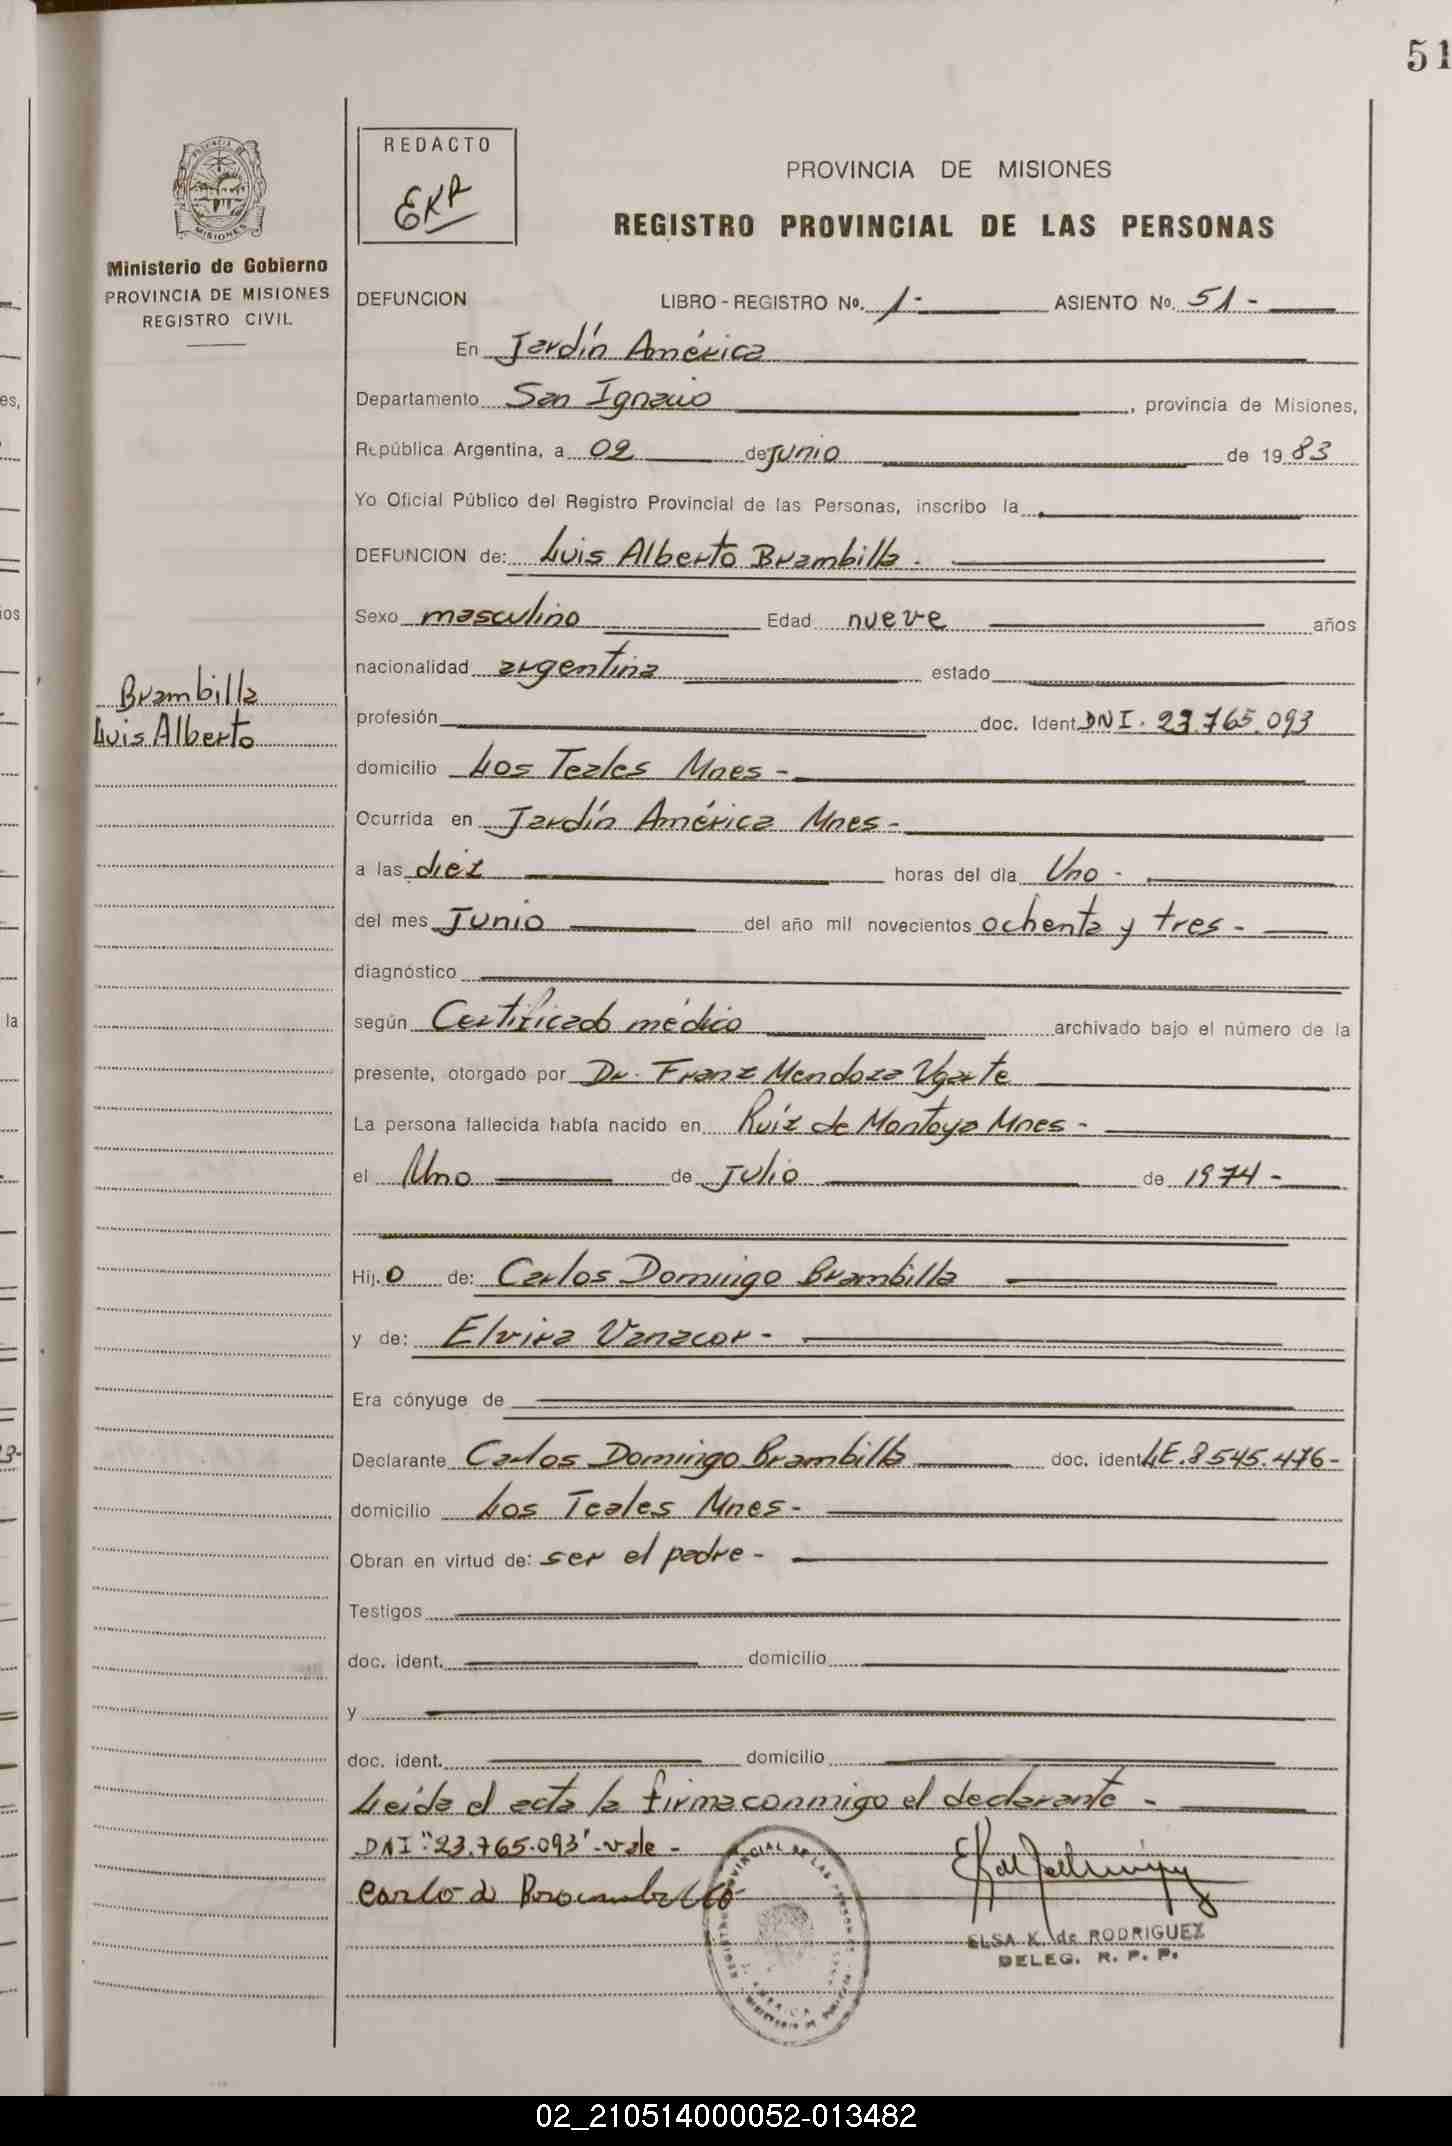 51
REDACTO
EKR
PROVINCIA DE MISIONES
REGISTRO PROVINCIAL DE LAS PERSONAS
PROVINCIA DE
MISIONES
Ministerio de Gobierno
PROVINCIA DE MISIONES
REGISTRO CIVIL
DEFUNCION LIBRO - REGISTRO Nº. 1- ASIENTO Nº. 51 -
En Jardín América
Departamento San Ignacio, provincia de Misiones,
República Argentina, a 02 de Junio de 19 83
Yo Oficial Público del Registro Provincial de las Personas, inscribo la
DEFUNCION de: Luis Alberto Brambilla.
Sexo masculino Edad nueve años
nacionalidad argentina estado
Brambilla
Luis Alberto
profesión doc. Ident. DNI. 23.765.093
domicilio Los Teales Mnes -
Ocurrida en Jardín América Mnes -
a las diez horas del día Uno -
del mes Junio del año mil novecientos ochenta y tres -
diagnóstico
según Certificado médico archivado bajo el número de la
presente, otorgado por Dr. Franz Mendoza Ugarte
La persona fallecida había nacido en Ruíz de Montoya Mnes -
el Uno de Julio de 1974 -
Hij.o de: Carlos Domingo Brambilla
y de: Elvira Vanacor -
Era cónyuge de
Declarante Carlos Domingo Brambilla doc. ident. LE. 8545.476 -
domicilio Los Teales Mnes -
Obran en virtud de: ser el padre -
Testigos
doc. ident. domicilio
y
doc. ident. domicilio
Leída el acta la firma conmigo el declarante -
DNI "23.765.093" - vale -
Carlo D Brambilla
ELSA K. de RODRIGUEZ
DELEG. R. P. P.
02_210514000052-013482